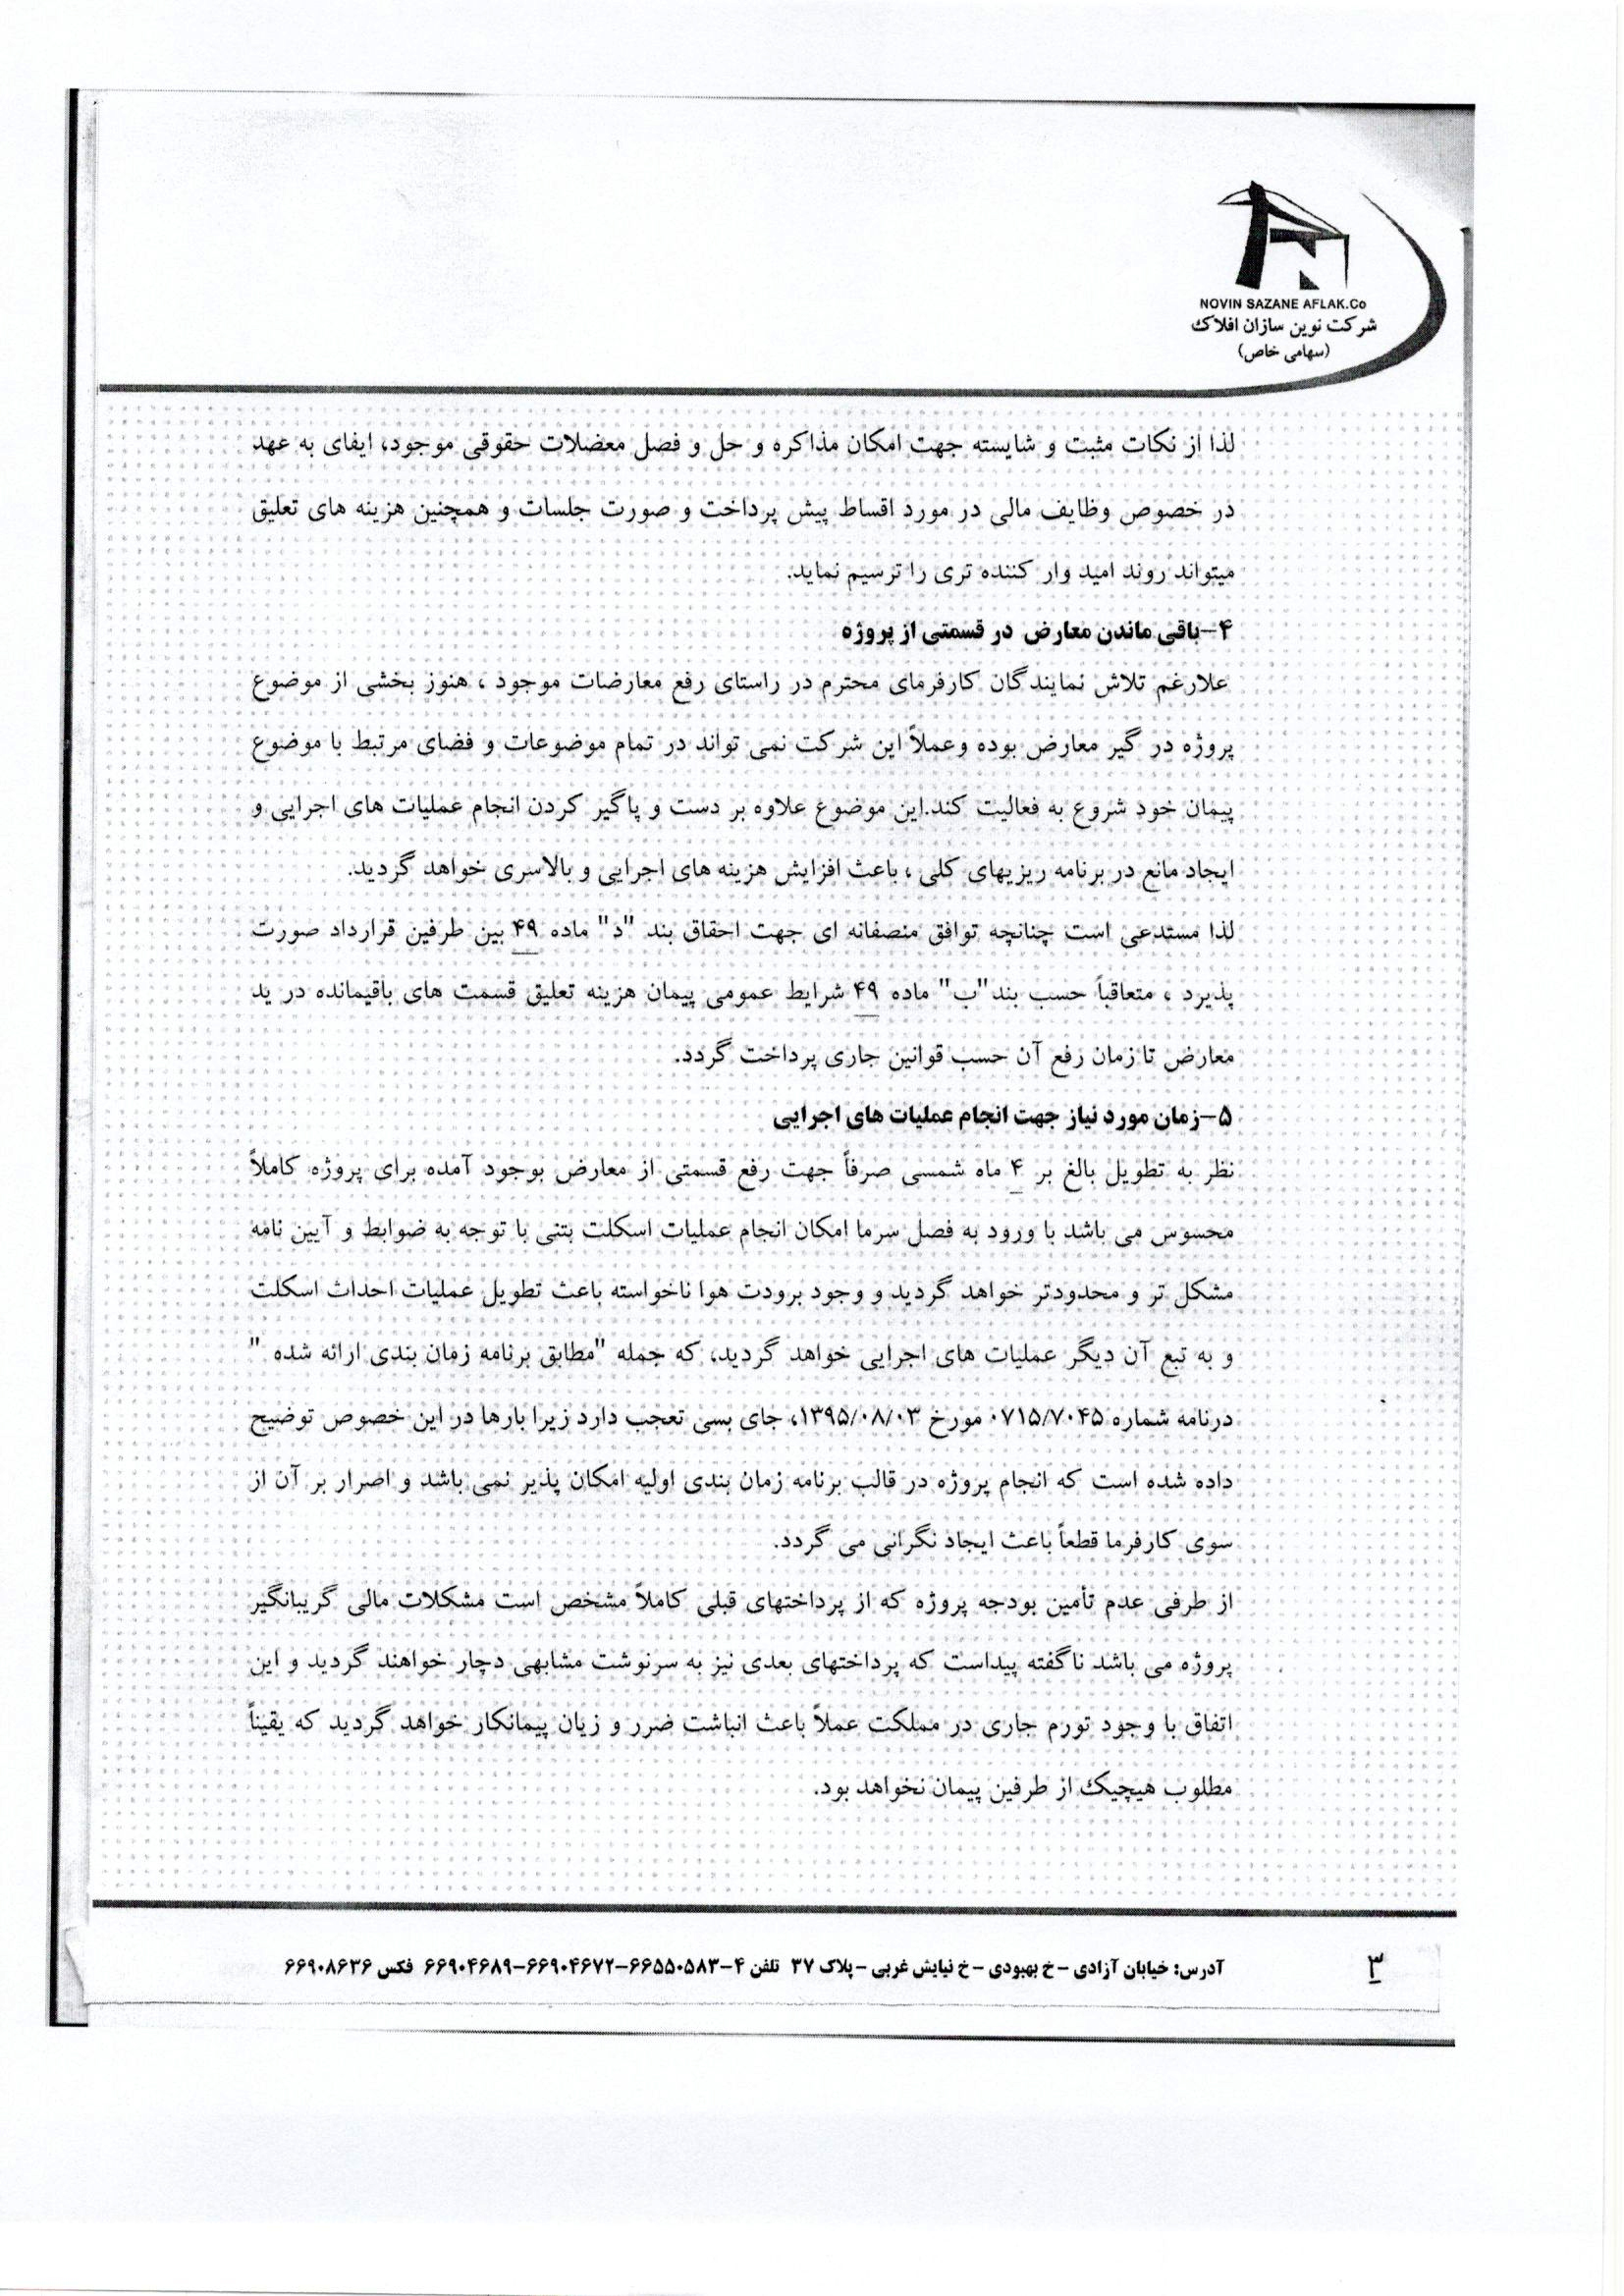 NOVIN SAZANE AFLAK.Co
شرکت نوین سازان افلاک
(سهامی خاص)
لذا از نکات مثبت و شایسته جهت امکان مذاکره و حل و فصل معضلات حقوقی موجود، ایفای به عهد
در خصوص وظایف مالی در مورد اقساط پیش پرداخت و صورت جلسات و همچنین هزینه های تعلیق
میتواند روند امید وار کننده تری را ترسیم نماید.
۴-باقی ماندن معارض در قسمتی از پروژه
علارغم تلاش نمایندگان کارفرمای محترم در راستای رفع معارضات موجود ، هنوز بخشی از موضوع
پروژه در گیر معارض بوده وعملاً این شرکت نمی تواند در تمام موضوعات و فضای مرتبط با موضوع
پیمان خود شروع به فعالیت کند.این موضوع علاوه بر دست و پاگیر کردن انجام عملیات های اجرایی و
ایجاد مانع در برنامه ریزیهای کلی ، باعث افزایش هزینه های اجرایی و بالاسری خواهد گردید.
لذا مستدعی است چنانچه توافق منصفانه ای جهت احقاق بند "د" ماده ۴۹ بین طرفین قرارداد صورت
پذیرد ، متعاقباً حسب بند"ب" ماده ۴۹ شرایط عمومی پیمان هزینه تعلیق قسمت های باقیمانده در ید
معارض تا زمان رفع آن حسب قوانین جاری پرداخت گردد.
۵-زمان مورد نیاز جهت انجام عملیات های اجرایی
نظر به تطویل بالغ بر ۴ ماه شمسی صرفاً جهت رفع قسمتی از معارض بوجود آمده برای پروژه کاملاً
محسوس می باشد با ورود به فصل سرما امکان انجام عملیات اسکلت بتنی با توجه به ضوابط و آیین نامه
مشکل تر و محدودتر خواهد گردید و وجود برودت هوا ناخواسته باعث تطویل عملیات احداث اسکلت
و به تبع آن دیگر عملیات های اجرایی خواهد گردید، که جمله "مطابق برنامه زمان بندی ارائه شده "
درنامه شماره ۰۷۱۵/۷۰۴۵ مورخ ۱۳۹۵/۰۸/۰۳، جای بسی تعجب دارد زیرا بارها در این خصوص توضیح
داده شده است که انجام پروژه در قالب برنامه زمان بندی اولیه امکان پذیر نمی باشد و اصرار بر آن از
سوی کارفرما قطعاً باعث ایجاد نگرانی می گردد.
از طرفی عدم تأمین بودجه پروژه که از پرداختهای قبلی کاملاً مشخص است مشکلات مالی گریبانگیر
پروژه می باشد ناگفته پیداست که پرداختهای بعدی نیز به سرنوشت مشابهی دچار خواهند گردید و این
اتفاق با وجود تورم جاری در مملکت عملاً باعث انباشت ضرر و زیان پیمانکار خواهد گردید که یقیناً
مطلوب هیچیک از طرفین پیمان نخواهد بود.
آدرس: خیابان آزادی - خ بهبودی - خ نیایش غربی - پلاک ۳۷ تلفن ۴-۶۶۵۵۰۵۸۳-۶۶۹۰۴۶۷۲-۶۶۹۰۴۶۸۹ فکس ۶۶۹۰۸۶۳۶
۳